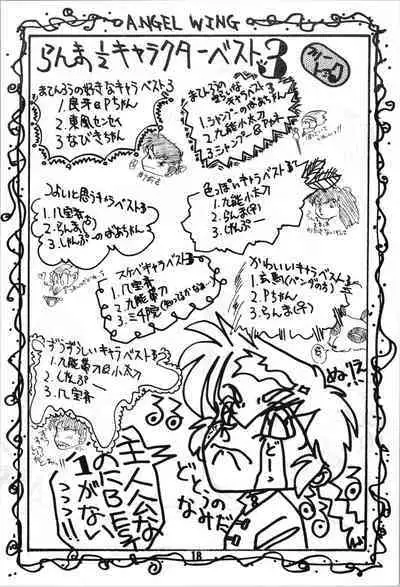 ANGEL WING
らんま½キャラクターベスト3
まてんろうの好きなキャラベスト3
1.良牙&Pちゃん
2.東風センセイ
3.なびきちゃん
まてんろうの
キャラベスト3
1.シャンプーのばあちゃん
2.九能小太刀
3.シャンプー&
つよいと思うキャラベスト3
1.八宝斉
2.らんま(男)
3.しゃんぷーのばあちゃん
色っぽいキャラベスト3
1.九能小太刀
2.らんま(女)
3.しゃんぷー
スケベキャラベスト3
1.八宝斉
2.九能帯刀
3.三千院
かわいいキャラベスト3
1.玄馬(パンダのち)
2.Pちゃん
3.らんま(子)
ずうずうしいキャラベスト3
1.九能帯刀&小太刀
2.しゃんぷー
3.八宝斉
ぬりえ!!
どーっ
どとうの
なみだ
主人公な
のにBEST
1がない
!!!
18